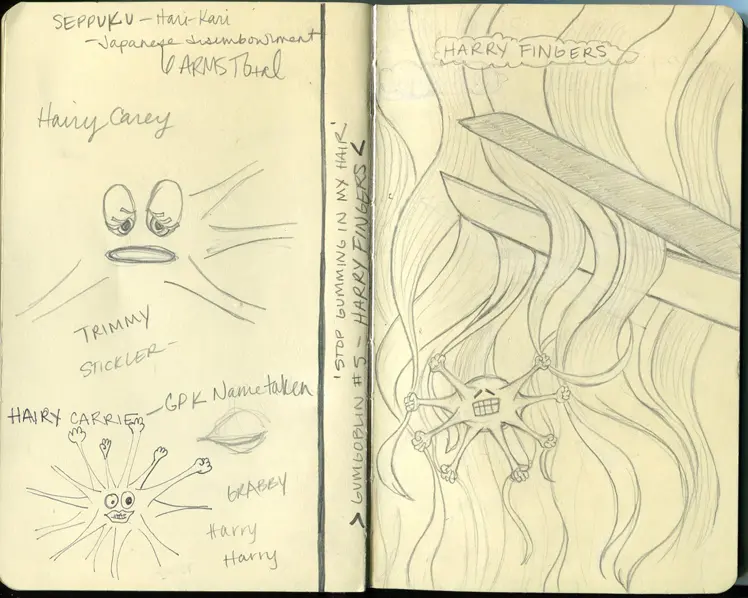 SEPPUKU - Hari-Kari
-Japanese disimbowlment
6 ARMS Total
Hairy Carey
TRIMMY
STICKLER-
HAIRY CARRIE - GPK Name taken
GRABBY
Harry
Harry
'STOP GUMMING IN MY HAIR'
> GUMGOBLIN #5 - HARRY FINGERS <
HARRY FINGERS